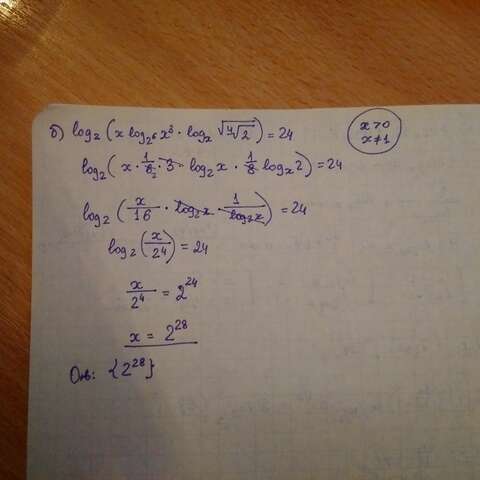 б) log₂(x log₂⁶ x³ · logₓ √∜2) = 24
x>0
x≠1
log₂(x · 1/6₂ · 3 · log₂x · 1/8 logₓ2) = 24
log₂(x/16 · log₂x · 1/log₂x) = 24
log₂(x/2⁴) = 24
x/2⁴ = 2²⁴
x = 2²⁸
Отв: {2²⁸}